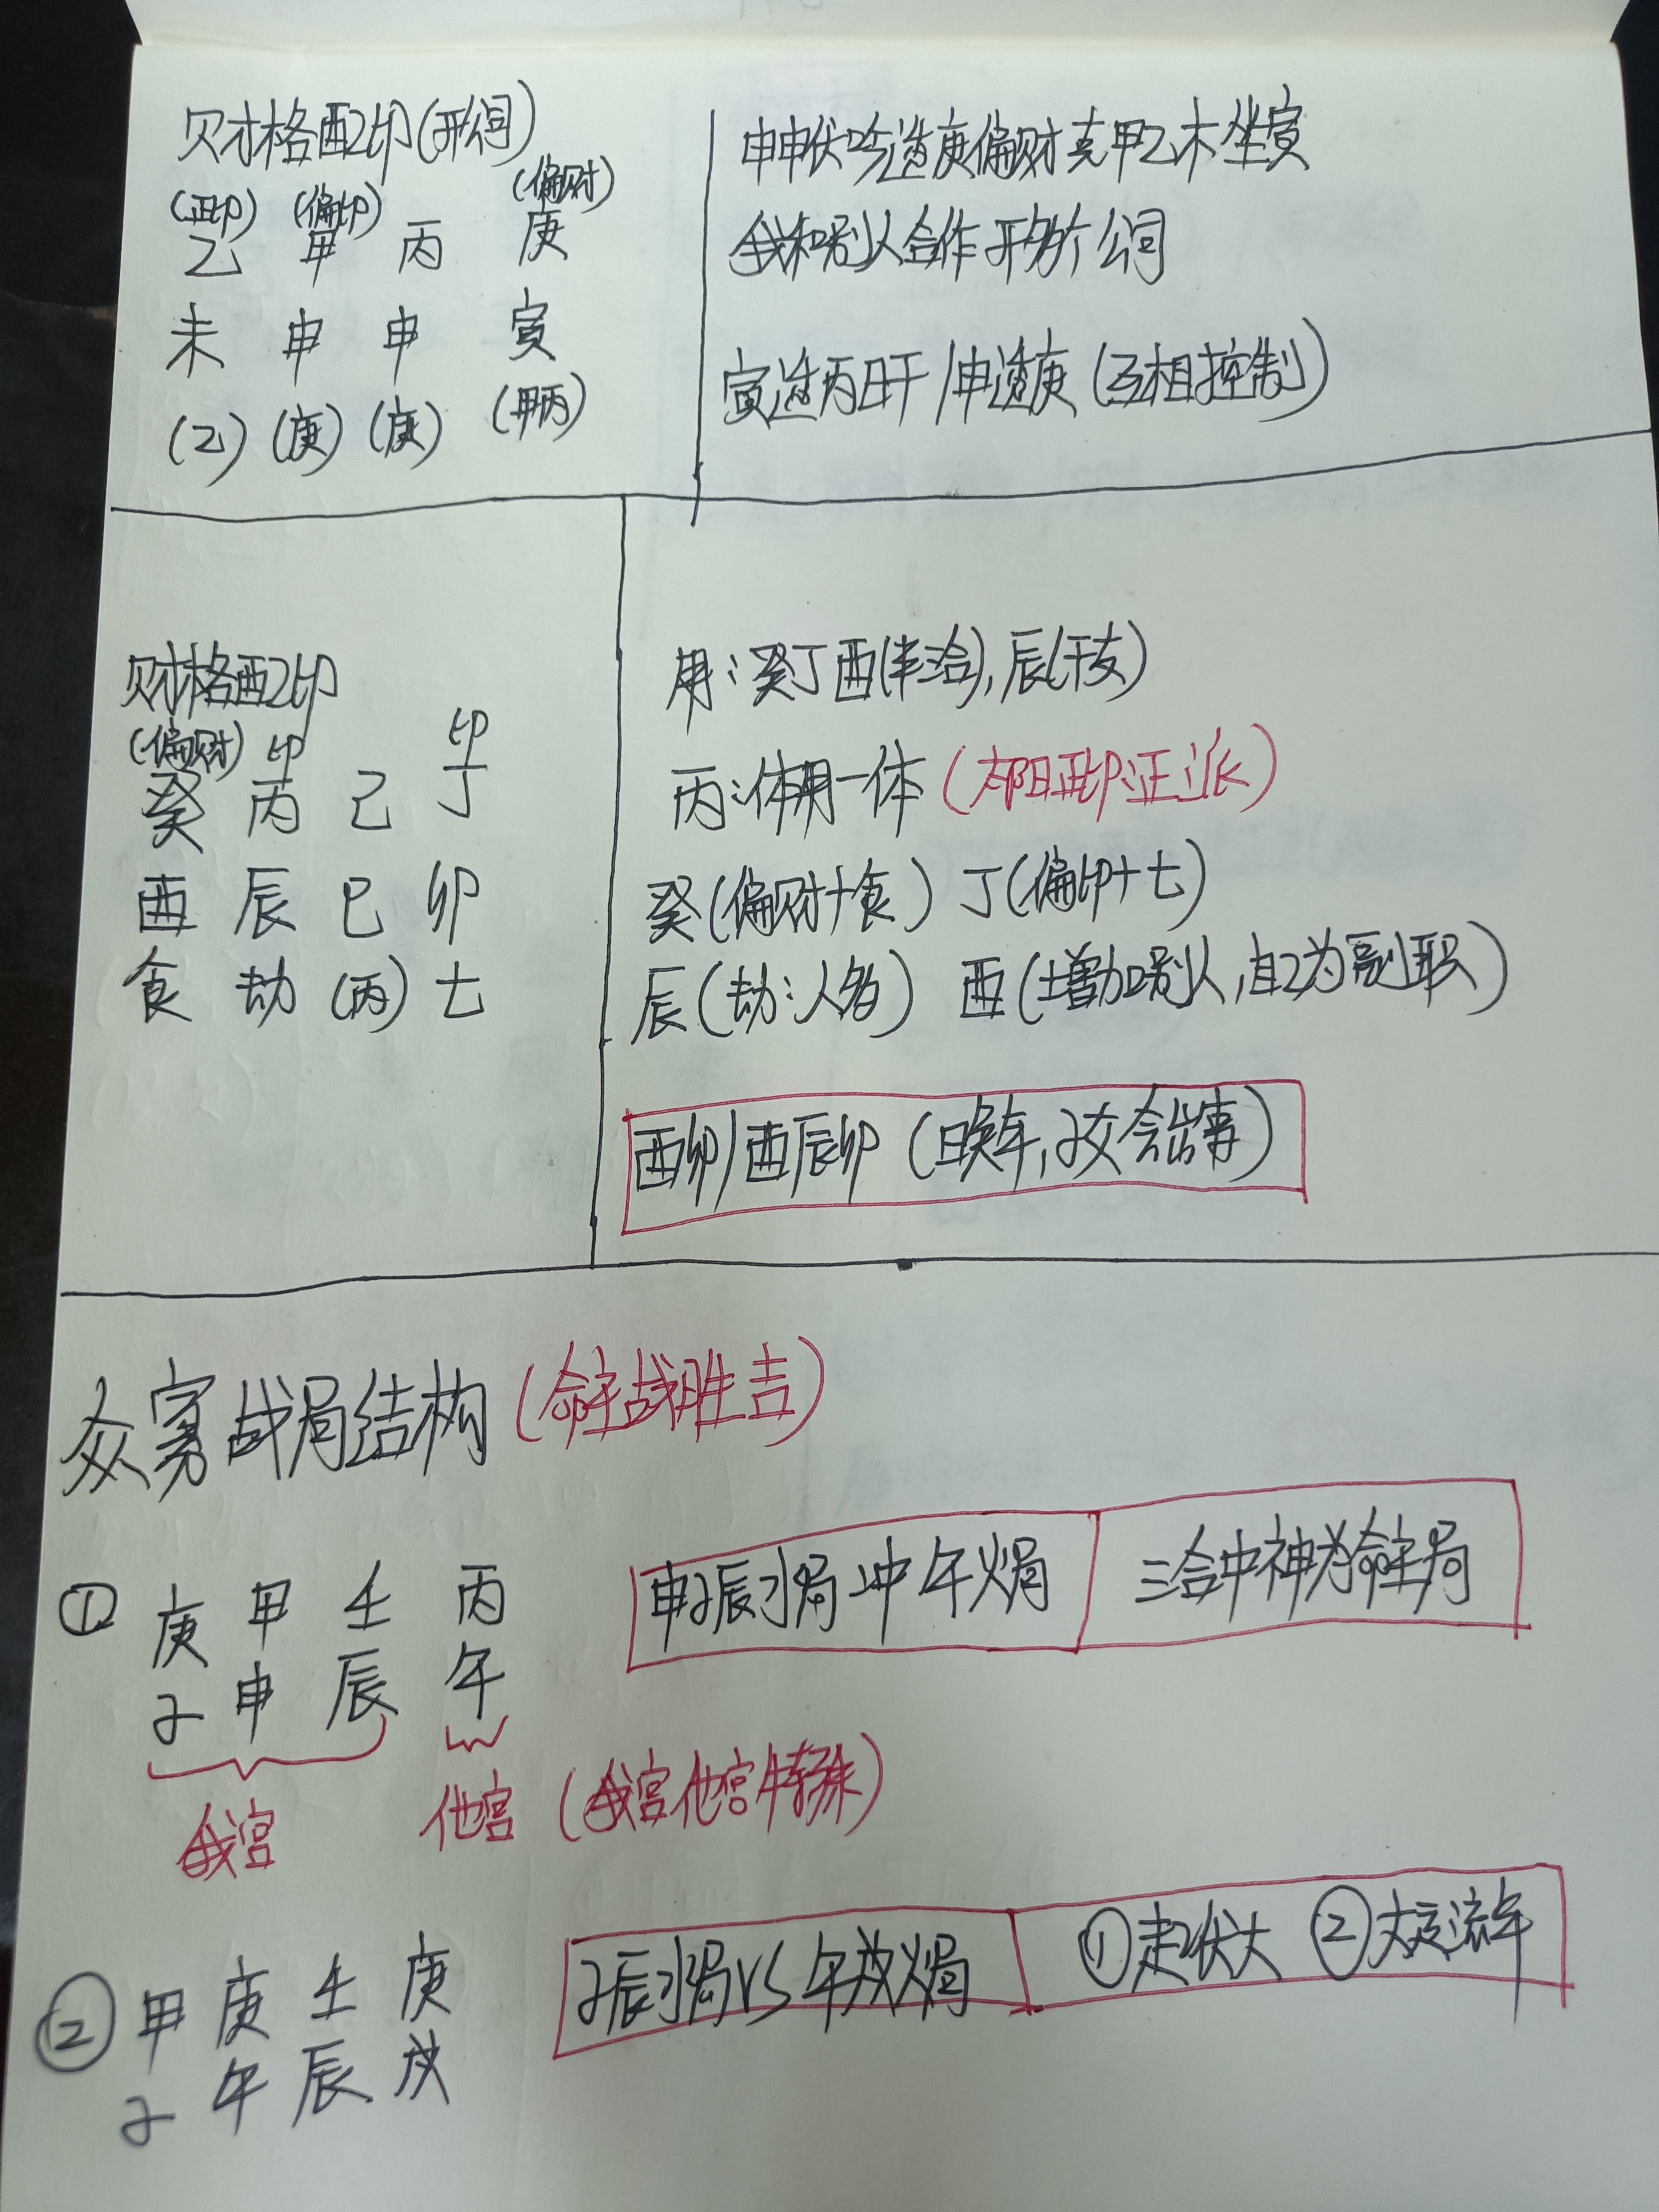 财格配印(开公司)
(正印) (偏印) (偏财)
乙 甲 丙 庚
未 申 申 寅
(乙) (庚) (庚) (甲丙)
申申伏吟透庚偏财克甲乙木坐寅
我和别人合作开多个公司
寅透丙日干/申透庚(互相控制)
财格配印
(偏财) 印 印
癸 丙 己 丁
酉 辰 巳 卯
食 劫 (丙) 七
用:癸丁酉(半合),辰(干支)
丙:体用一体(太阳正印:正派)
癸(偏财+食) 丁(偏印+七)
辰(劫:人多) 酉(增加别人,自己为副职)
酉卯/酉辰卯(晚年,子女会出事)
众寡战局结构(命主战胜吉)
① 庚 甲 壬 丙
子 申 辰 午
申子辰水局冲午火局 三合中神为命主局
我宫 他宫(我宫他宫特殊)
② 甲 庚 壬 庚
子 午 辰 戌
子辰水局VS午戌火局 ①起伏大 ②大运流年